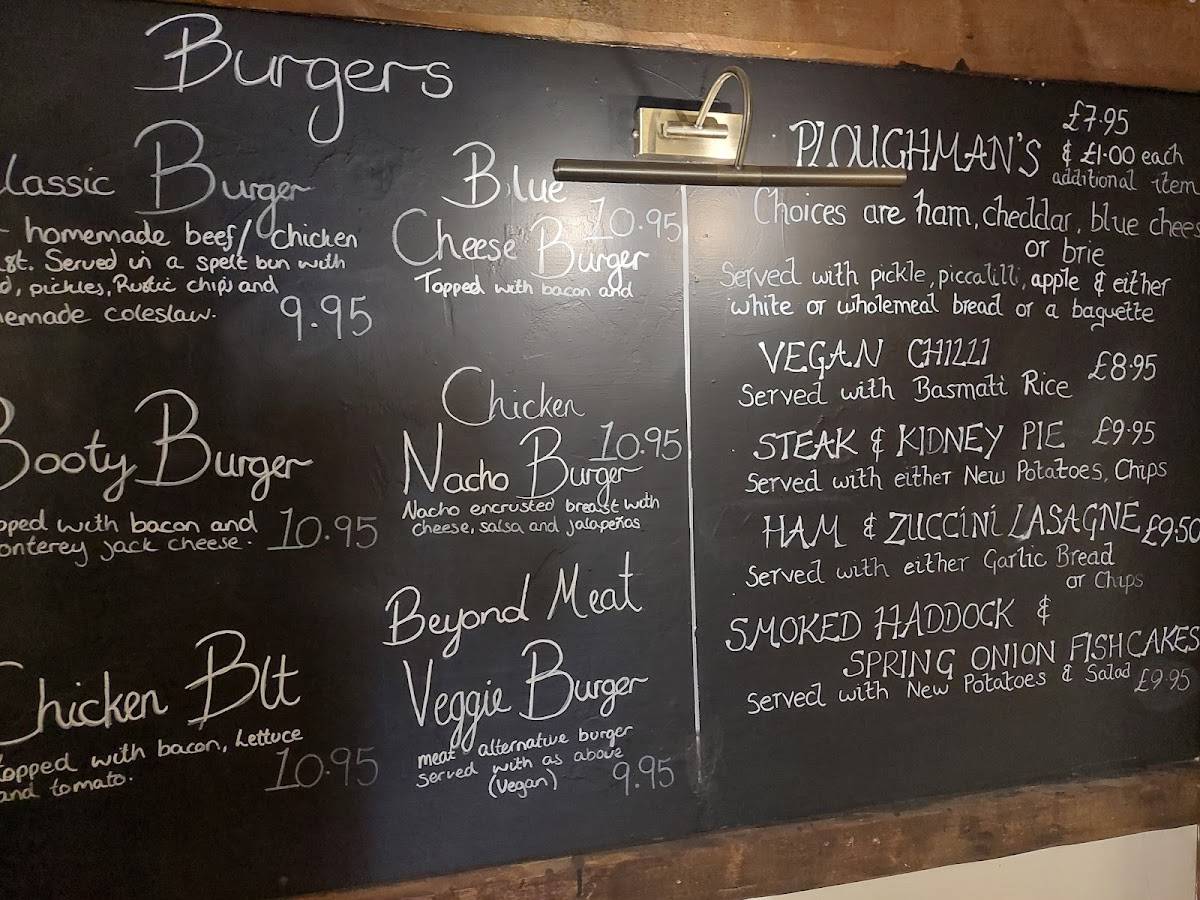 Burgers
Burger
homemade beef/ chicken
Served in a spelt bun with
pickles, Rustic chips and
coleslaw.
9.95
Booty Burger
with bacon and
jack cheese.
10.95
Chicken Blt
topped with bacon, Lettuce
and tomato.
10.95
Blue
Cheese Burger
10.95
Topped with bacon and
Chicken
Nacho Burger
10.95
Nacho encrusted breast with
cheese, salsa and jalapeñas
Beyond Meat
Veggie Burger
meat - alternative burger
served with as above
(Vegan)
9.95
PLOUGHMAN'S
£7.95
& £1.00 each
additional item
Choices are ham, cheddar, blue
or brie
Served with pickle, piccalilli, apple & either
white or wholemeal bread or a baguette
VEGAN CHILLI £8.95
Served with Basmati Rice
STEAK & KIDNEY PIE £9.95
Served with either New Potatoes, Chips
HAM & ZUCCINI LASAGNE £9.50
Served with either Garlic Bread
or Chips
SMOKED HADDOCK &
SPRING ONION FISHCAKES
Served with New Potatoes & Salad £9.95